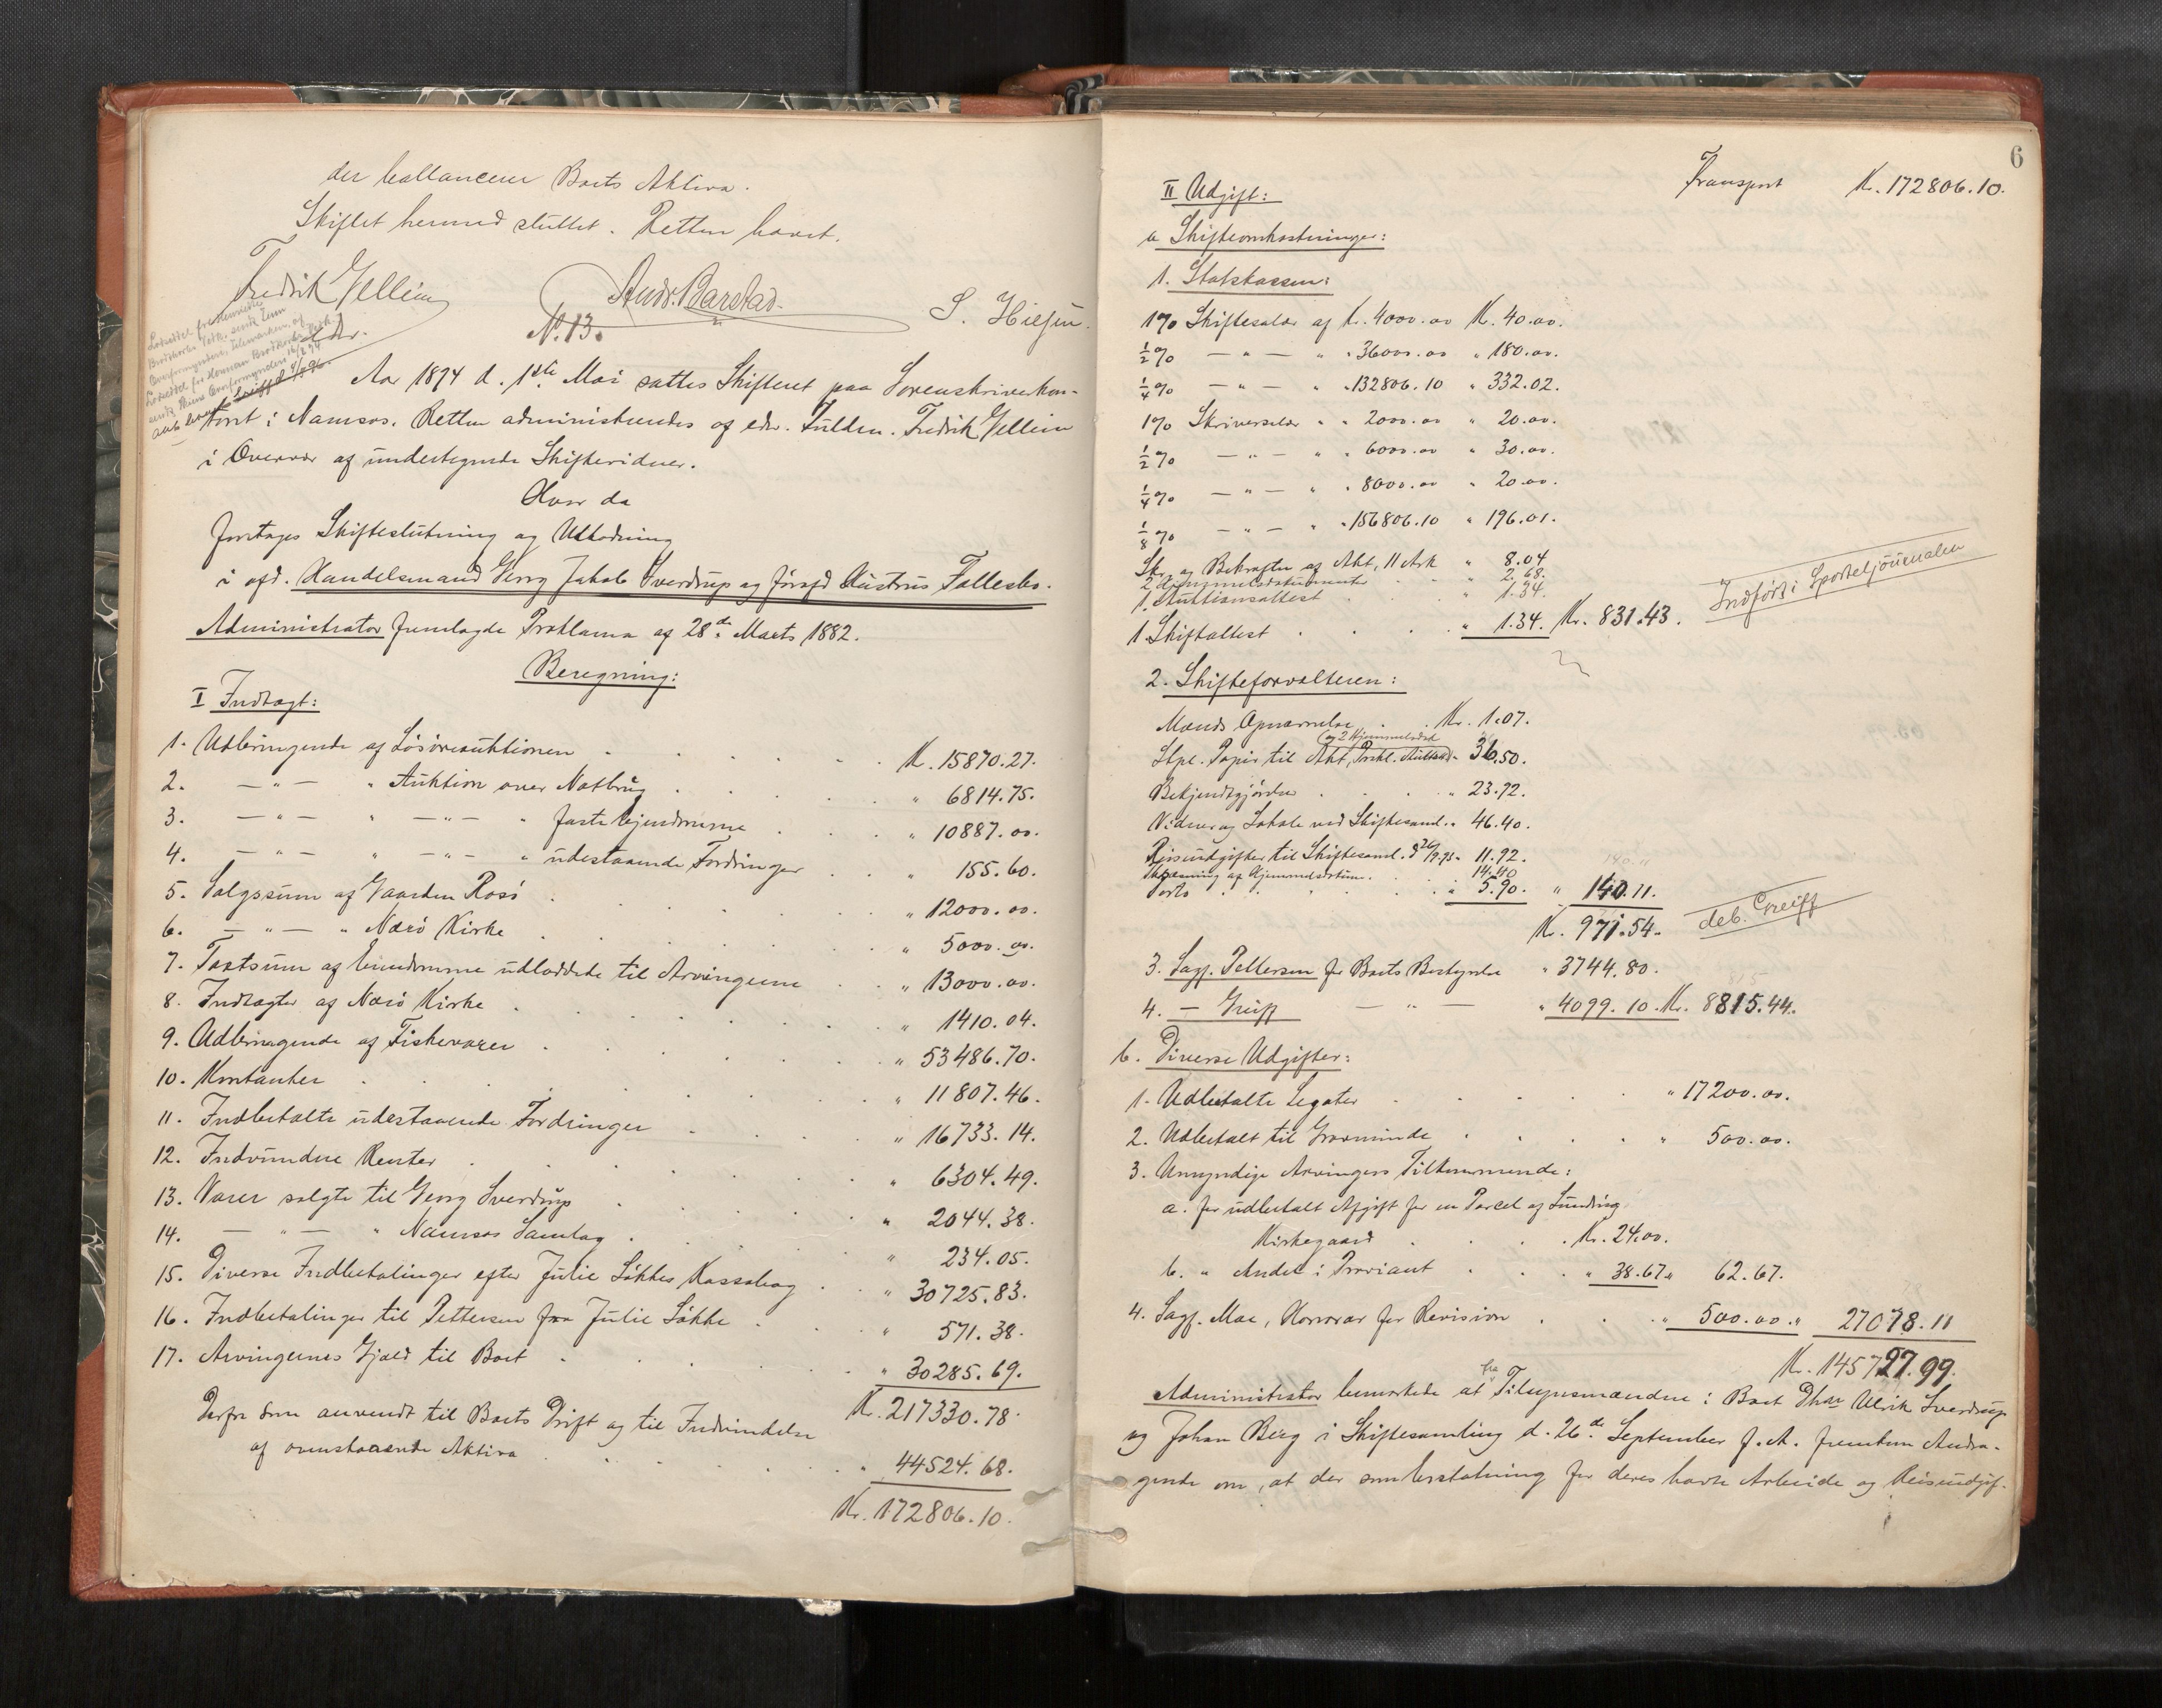 der ballancerer Boets Aktiva.
Skiftet hermed sluttet. Retten hævet.
Fredrik Gellein
edsv.
Andr. Barstad
No. 13.
Aar 1894 d. 1ste Mai sattes Skifteret paa Sorenskriverkon-
toret i Namsos. Retten administreredes af edsv. Fuldm. Fredrik Gellein
i Overvær af undertegnede Skiftevidner.
Hvor da
foretages Skifteslutning og Udlodning
i afd. Handelsmand Georg Jakob Sverdrup og forafd Hustrus Fællesbo.
Administrator fremlagde Proklama af 28de Marts 1882.
Beregning:
I Indtægt:
1. Udbringende af Løsøreauktionen . Kr. 15870.27.
2. — " — " Auktion over Notbrug . " 6814.75.
3. — " — " — " — " faste Ejendomme . " 10887.00.
4. — " — " — " — " udestaaende Fordringer . " 155.60.
5. Salgssum af Gaarden Rosø . " 12000.00.
6. — " — " Nærø Kirke . " 5000.00.
7. Taxtsum af Eiendomme udloddede til Arvingerne . " 13000.00.
8. Indtægter af Nærø Kirke . " 1410.04.
9. Udbringende af Fiskevarer . " 53486.70.
10. Kontanter . " 11807.46.
11. Indbetalte udestaaende Fordringer . " 16733.14.
12. Indvundne Renter . " 6304.49.
13. Varer solgte til Georg Sverdrup . " 2044.38.
14. — " — " Namsos Samlag . " 234.05.
15. Diverse Indbetalinger efter Julie Løkkes Kassabog . " 30725.83.
16. Indbetalinger til Pettersen fra Julie Løkke . " 571.38.
17. Arvingernes Gjæld til Boet . " 30285.69.
Kr. 217330.78.
Derfra som anvendt til Boets Drift og til Indvindelse
af ovenstaaende Aktiva . " 44524.68.
Kr. 172806.10.
6
Transport Kr. 172806.10.
II Udgift:
a Skifteomkostninger:
1. Statskassen:
1% Skiftesalær af Kr. 4000.00 Kr. 40.00.
1/2% — " — " " 36000.00 " 180.00.
1/4% — " — " " 132806.10 " 332.02.
1% Skriversalær " " 2000.00 " 20.00.
1/2% — " — " " 6000.00 " 30.00.
1/4% — " — " " 8000.00 " 20.00.
1/8% — " — " " 156806.10 " 196.01.
Skr. og Bekræftn af Akt, 11 Ark " 8.04
2 Hjemmelsdokumenter " 2.68.
1. Auktionsattest " 1.34.
1 Skifteattest . " 1.34. Kr. 831.43.
Indført i Sporteljournalen
2. Skifteforvalteren:
Mænds Opnævnelse . Kr. 1.07.
og 2 Hjemmelsdok
Stpl. Papir til Akt, Prokl. " 36.50.
Bekjendtgjørelse . " 23.92.
Vidner og Lokale ved Skiftesaml. " 46.40.
Reiseudgifter til Skiftesaml. d 26/9.93 " 11.92.
Thinglæsning af Hjemmelsdokum. 14.40
Porto . " 5.90. " 140.11.
Kr. 971.54.
deb. Greiff
3. Sagf. Pettersen for Boets Bestyrelse " 3744.80.
4. — Greiff — " — " 4099.10. Kr. 8815.44.
b. Diverse Udgifter:
1. Udbetalte Legater . " 17200.00.
2. Udbetalt til Gravminde . " 500.00.
3. Umyndige Arvingers Tilkommende:
a. for udbetalt Afgift for en Parcel af Lunding
Kirkegaard . Kr. 24.00.
b. " Andel i Proviant . " 38.67. " 62.67.
4. Sagf. Moe, Honorar for Revision . " 500.00. " 27078.11
Kr. 145727.99.
Administrator bemærkede at fra Tilsynsmændene i Boet Dhrr Ulrik Sverdrup
og Johan Berg i Skiftesamling d. 26de September f.A. fremkom Andra-
gende om, at der som Erstatning for deres havte Arbeide og Reiseudgif-